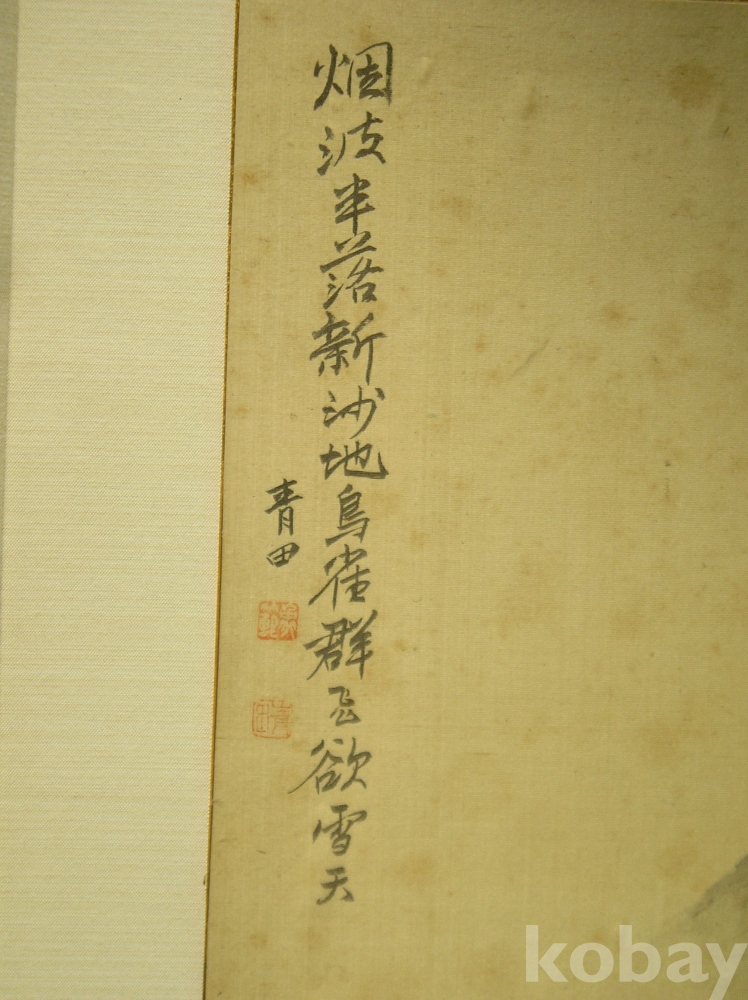 烟波半落新沙地鳥雀群飞欲雪天
青田
kobay